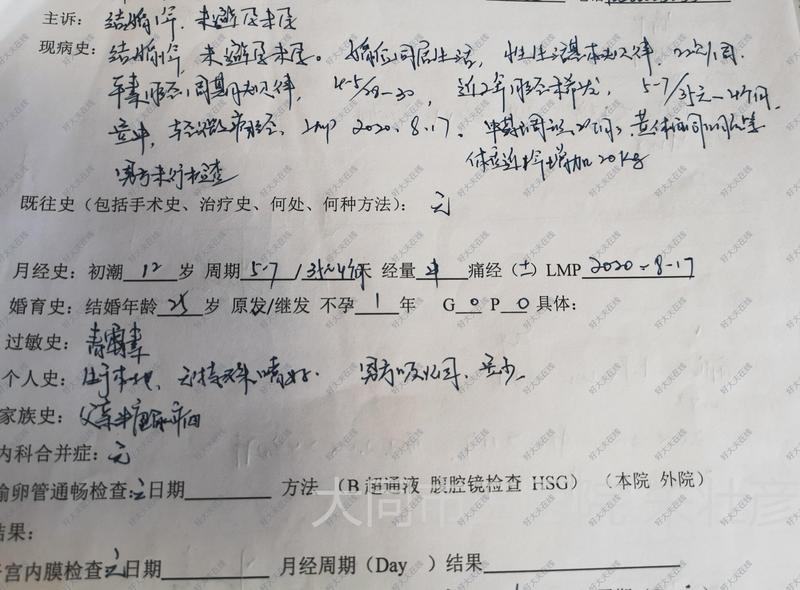 主诉：结婚1年，未避孕未孕
现病史：结婚1年，未避孕未孕。婚后同居生活，性生活基本规律，2次/周.
平素月经周期规律，4-5/29-30，近2年月经稀发，5-7/35天-4个月.
量中，轻微痛经，LMP 2020.8.17.
男方未行检查 体重近 增加20kg
既往史（包括手术史、治疗史、何处、何种方法）：无
月经史：初潮 12 岁 周期 5-7/35~4个月天 经量 中 痛经（±）LMP 2020-8-17
婚育史：结婚年龄 25 岁 原发/继发 不孕 1 年 G 0 P 0 具体：
过敏史：青霉素
个人史：生于本地，无特殊嗜好. 男方吸烟，量少
家族史：父亲半糖尿病
内科合并症：无
输卵管通畅检查：无 日期 方法 （B超通液 腹腔镜检查 HSG）（本院 外院）
结果：
子宫内膜检查 无 日期 月经周期（Day ）结果
大同市
好大夫在线